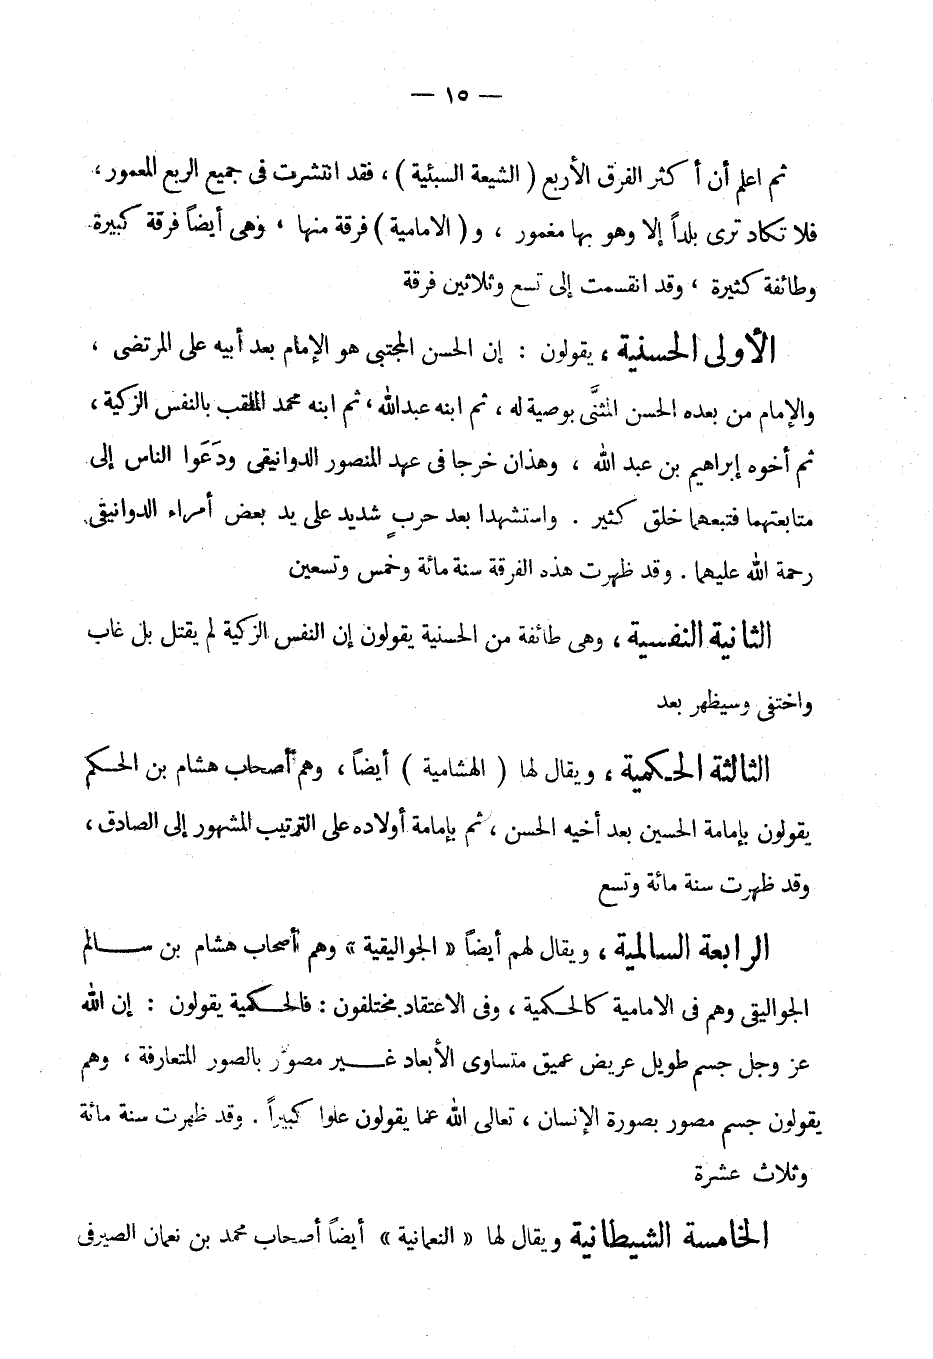 — ١٥ —
ثم اعلم أن أكثر الفرق الأربع ( الشيعة السبئية ) ، فقد انتشرت فى جميع الربع المعمور ،
فلا تكاد ترى بلداً إلا وهو بها مغمور ، و ( الامامية ) فرقة منها ، وهى أيضاً فرقة كبيرة
وطائفة كثيرة ، وقد انقسمت إلى تسع وثلاثين فرقة
الأولى الحسنية ، يقولون : إن الحسن المجتبى هو الإمام بعد أبيه على المرتضى ،
والإمام من بعده الحسن المثنَّى بوصية له ، ثم ابنه عبدالله ، ثم ابنه محمد الملقب بالنفس الزكية ،
ثم أخوه إبراهيم بن عبد الله ، وهذان خرجا فى عهد المنصور الدوانيقى ودَعَوا الناس إلى
متابعتهما فتبعهما خلق كثير . واستشهدا بعد حربٍ شديد على يد بعض أمراء الدوانيقى
رحمة الله عليهما . وقد ظهرت هذه الفرقة سنة مائة وخمس وتسعين
الثانية النفسية ، وهى طائفة من الحسنية يقولون إن النفس الزكية لم يقتل بل غاب
واختفى وسيظهر بعد
الثالثة الحكمية ، ويقال لها ( الهشامية ) أيضاً ، وهم أصحاب هشام بن الحكم
يقولون بإمامة الحسين بعد أخيه الحسن ، ثم بإمامة أولاده على الترتيب المشهور إلى الصادق ،
وقد ظهرت سنة مائة وتسع
الرابعة السالمية ، ويقال لهم أيضاً « الجواليقية » وهم أصحاب هشام بن سالم
الجواليقى وهم فى الامامية كالحكمية ، وفى الاعتقاد مختلفون : فالحكمية يقولون : إن الله
عز وجل جسم طويل عريض عميق متساوى الأبعاد غير مصوّر بالصور المتعارفة ، وهم
يقولون جسم مصور بصورة الإنسان ، تعالى الله عما يقولون علوا كبيراً . وقد ظهرت سنة مائة
وثلاث عشرة
الخامسة الشيطانية ويقال لها « النعمانية » أيضاً أصحاب محمد بن نعمان الصيرفى